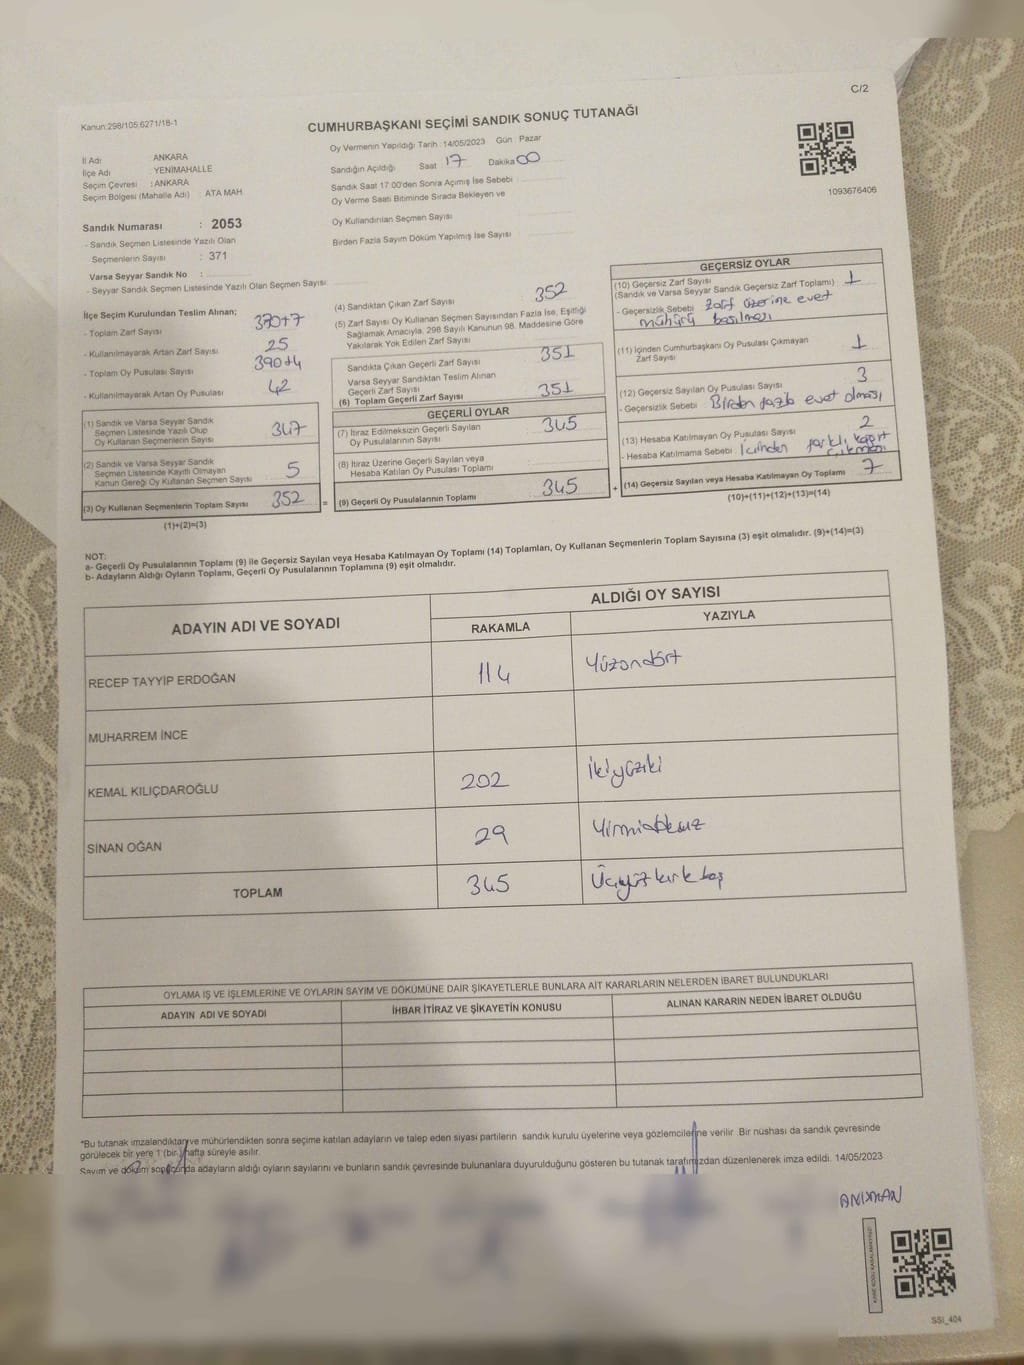 C/2
Kanun:298/105;6271/18-1
CUMHURBAŞKANI SEÇİMİ SANDIK SONUÇ TUTANAĞI
Oy Vermenin Yapıldığı Tarih :14/05/2023 Gün : Pazar
İl Adı ANKARA
İlçe Adı YENİMAHALLE
Seçim Çevresi : ANKARA
Seçim Bölgesi (Mahalle Adı) : ATA MAH
Sandığın Açıldığı Saat : 17 Dakika 00
Sandık Saat 17.00'den Sonra Açımış İse Sebebi
Oy Verme Saati Bitiminde Sırada Bekleyen ve
Oy Kullandırılan Seçmen Sayısı
Birden Fazla Sayım Döküm Yapılmış İse Sayısı
1093676406
Sandık Numarası : 2053
- Sandık Seçmen Listesinde Yazılı Olan
Seçmenlerin Sayısı : 371
Varsa Seyyar Sandık No :
- Seyyar Sandık Seçmen Listesinde Yazılı Olan Seçmen Sayısı
İlçe Seçim Kurulundan Teslim Alınan;
- Toplam Zarf Sayısı 370+7
- Kullanılmayarak Artan Zarf Sayısı 25
- Toplam Oy Pusulası Sayısı 390+4
- Kullanılmayarak Artan Oy Pusulası 42
(1) Sandık ve Varsa Seyyar Sandık
Seçmen Listesinde Yazılı Olup
Oy Kullanan Seçmenlerin Sayısı 347
(2) Sandık ve Varsa Seyyar Sandık
Seçmen Listesinde Kayıtlı Olmayan
Kanun Gereği Oy Kullanan Seçmen Sayısı 5
(3) Oy Kullanan Seçmenlerin Toplam Sayısı 352 =
(1)+(2)=(3)
(4) Sandıktan Çıkan Zarf Sayısı 352
(5) Zarf Sayısı Oy Kullanan Seçmen Sayısından Fazla İse, Eşitliği
Sağlamak Amacıyla, 298 Sayılı Kanunun 98. Maddesine Göre
Yakılarak Yok Edilen Zarf Sayısı
Sandıkta Çıkan Geçerli Zarf Sayısı 351
Varsa Seyyar Sandıktan Teslim Alınan
Geçerli Zarf Sayısı
(6) Toplam Geçerli Zarf Sayısı 351
GEÇERLİ OYLAR
(7) İtiraz Edilmeksizin Geçerli Sayılan
Oy Pusulalarının Sayısı 345
(8) İtiraz Üzerine Geçerli Sayılan veya
Hesaba Katılan Oy Pusulası Toplamı
(9) Geçerli Oy Pusulalarının Toplamı 345 +
GEÇERSİZ OYLAR
(10) Geçersiz Zarf Sayısı
(Sandık ve Varsa Seyyar Sandık Geçersiz Zarf Toplamı) 1
- Geçersizlik Sebebi zarf üzerine evet
mühürü basılması
(11) İçinden Cumhurbaşkanı Oy Pusulası Çıkmayan
Zarf Sayısı 1
(12) Geçersiz Sayılan Oy Pusulası Sayısı 3
- Geçersizlik Sebebi Birden fazla evet olması
(13) Hesaba Katılmayan Oy Pusulası Sayısı 2
- Hesaba Katılmama Sebebi İçinden farklı kağıt
çıkması
(14) Geçersiz Sayılan veya Hesaba Katılmayan Oy Toplamı 7
(10)+(11)+(12)+(13)=(14)
NOT:
a- Geçerli Oy Pusulalarının Toplamı (9) ile Geçersiz Sayılan veya Hesaba Katılmayan Oy Toplamı (14) Toplamları, Oy Kullanan Seçmenlerin Toplam Sayısına (3) eşit olmalıdır. (9)+(14)=(3)
b- Adayların Aldığı Oyların Toplamı, Geçerli Oy Pusulalarının Toplamına (9) eşit olmalıdır.
ADAYIN ADI VE SOYADI
ALDIĞI OY SAYISI
RAKAMLA YAZIYLA
RECEP TAYYİP ERDOĞAN 114 Yüzondört
MUHARREM İNCE
KEMAL KILIÇDAROĞLU 202 İkiyüziki
SİNAN OĞAN 29 Yirmidokuz
TOPLAM 345 Üçyüzkırkbeş
OYLAMA İŞ VE İŞLEMLERİNE VE OYLARIN SAYIM VE DÖKÜMÜNE DAİR ŞİKAYETLERLE BUNLARA AİT KARARLARIN NELERDEN İBARET BULUNDUKLARI
ADAYIN ADI VE SOYADI İHBAR İTİRAZ VE ŞİKAYETİN KONUSU ALINAN KARARIN NEDEN İBARET OLDUĞU
*Bu tutanak imzalandıktan ve mühürlendikten sonra seçime katılan adayların ve talep eden siyasi partilerin sandık kurulu üyelerine veya gözlemcilerine verilir .Bir nüshası da sandık çevresinde
görülecek bir yere 1 (bir) hafta süreyle asılır.
Sayım ve döküm sonucunda adayların aldığı oyların sayılarını ve bunların sandık çevresinde bulunanlara duyurulduğunu gösteren bu tutanak tarafımızdan düzenlenerek imza edildi. 14/05/2023
SSI_404